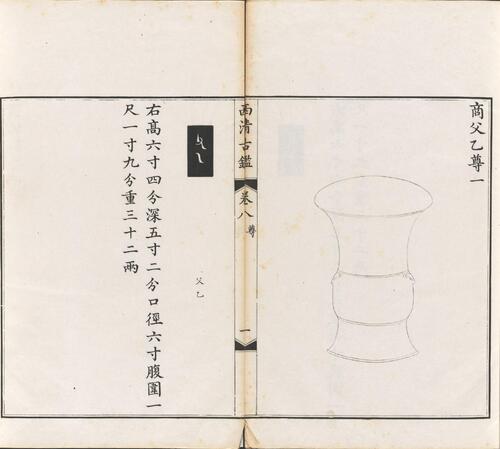 商父乙尊一
西清古鑑
卷八
尊
一
父乙
右高六寸四分深五寸二分口徑六寸腹圍一
尺一寸九分重三十二兩